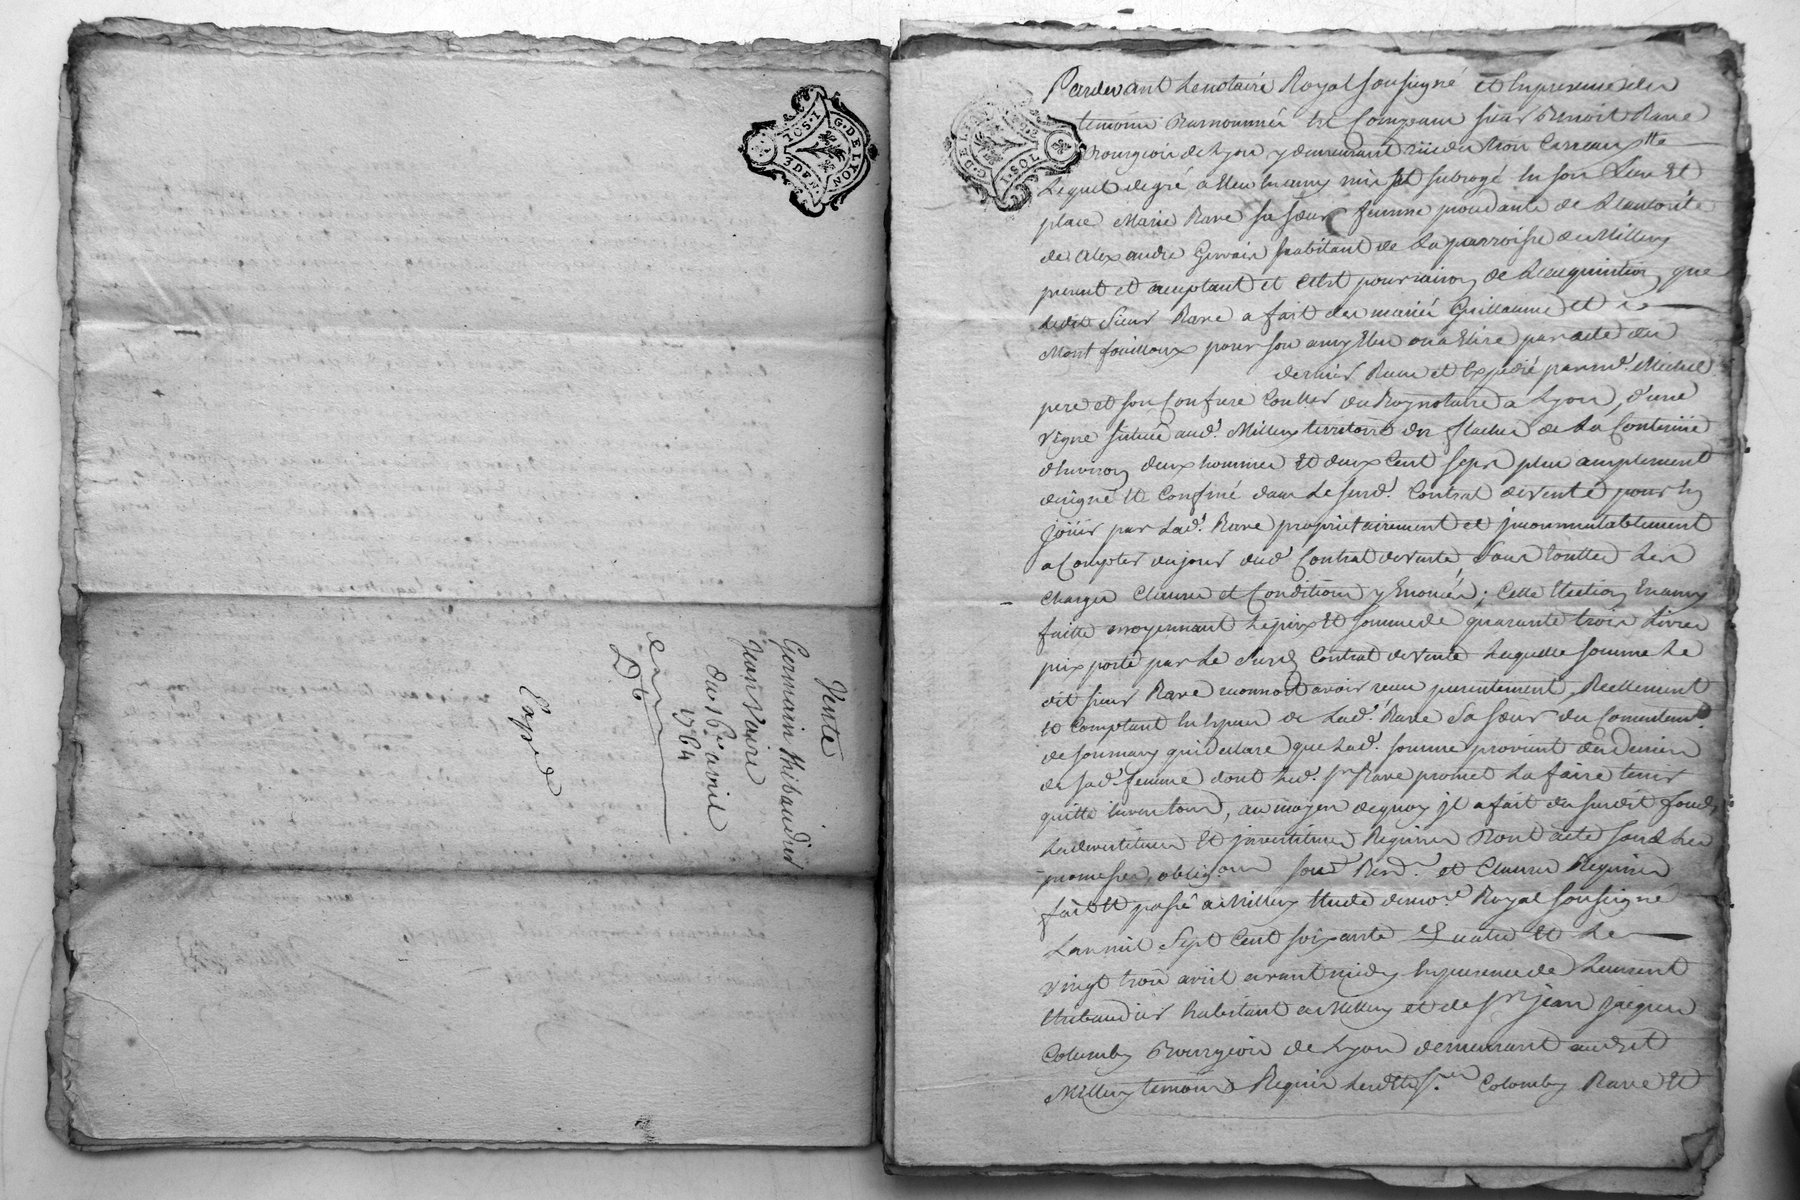 G. DE LYON
1 SOL
3 DEN
Vente
Germain thibaudier
Jean Vaire
du 16e avril
1764
Exped
G. DE LYON
1 SOL
Pardevant Le notaire Royal soussigné et En presence des
temoins Basnommés est Comparu sieur Benoit Rave
Bourgeois de Lyon y demeurant rüe des trois Carreaux
Lequel de gré a Eleu En amy mis et subrogé En son Lieu Et
place Marie Rave sa sœur femme procedante de L'autorité
de Alexandre Gervais habitant de La parroisse de Millery
present et acceptant et C'est pour raison de L'acquisition que
Ledit Sieur Rave a fait des mariés Guillaume et
Montfouilloux pour son amy Eleu ou a Elire par acte du
dernier Receu et Expedié par me. Michel
pere et son Confrere Coners du Roy notaire a Lyon, d'une
vigne située aud. Millery territoire des flaches de La Contenüe
d'Environ deux hommes Et deux Cent seps plus amplement
designé Et Confiné dans Le susd. Contrat de vente pour En
joüir par Lad. Rave proprietairement et jncommutablement
a Compter du jour dud. Contrat de vente, sous touttes Les
charges Clauses et Conditions y Enoncées; Cette Election En amy
faitte moyennant Le prix Et somme de quarante trois Livres
prix porté par Le Susd. Contrat de vente Laquelle somme Le
dit sieur Rave reconnoit avoir receu presentement Reellement
Et Comptant En Especes de Lad. Rave Sa sœur du Consentemt.
de son mary qui declare que Lad. somme provient des deniers
de sad. femme dont Led. sr. Rave promet La faire tenir
quitte Envers tous, au moyen de quoy jl a fait du susdit fonds
Les devestitures Et jnvestitures Requises Dont acte sous Les
promesses, obligaons sous. Rend. et Clauses Requises
fait Et passé a Millery Etude du nore. Royal soussigné
L'an mil Sept Cent soixante Quatre Et Le
vingt trois avril avant midy En presence de Laurent
thibaudier habitant a Millery et de sr. jean jacques
Colomby Bourgeois de Lyon demeurant audit
Millery temoins Requis Lesdits srs. Colomby Rave Et